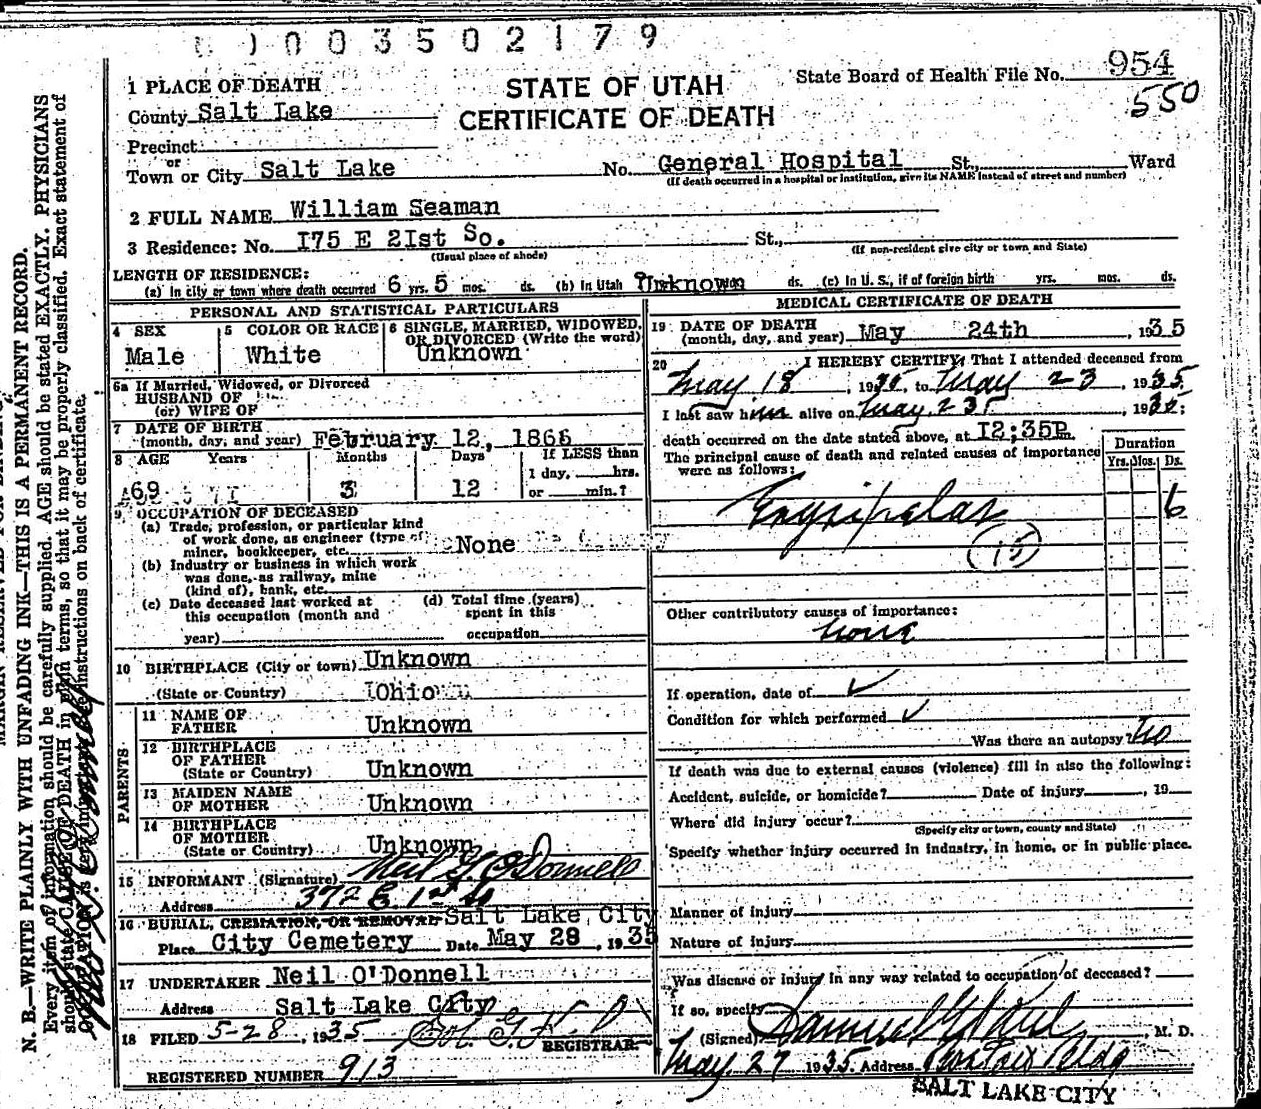 0 0 3 5 0 2 1 7 9
STATE OF UTAH
CERTIFICATE OF DEATH
State Board of Health File No. 954
550
1 PLACE OF DEATH
County Salt Lake
Precinct
or
Town or City Salt Lake No. General Hospital St., Ward
(If death occurred in a hospital or institution, give its NAME instead of street and number)
2 FULL NAME William Seaman
3 Residence: No. 175 E 21st So. St.,
(Usual place of abode) (If non-resident give city or town and State)
LENGTH OF RESIDENCE:
(a) In city or town where death occurred 6 yrs. 5 mos. ds. (b) In Utah Unknown ds. (c) In U. S., if of foreign birth yrs. mos. ds.
PERSONAL AND STATISTICAL PARTICULARS
4 SEX
Male
5 COLOR OR RACE
White
6 SINGLE, MARRIED, WIDOWED,
OR DIVORCED (Write the word)
Unknown
6a If Married, Widowed, or Divorced
HUSBAND OF
(or) WIFE OF
7 DATE OF BIRTH
(month, day, and year) February 12, 1866
8 AGE Years Months Days If LESS than
1 day, hrs.
69 3 12 or min.?
9 OCCUPATION OF DECEASED
(a) Trade, profession, or particular kind
of work done, as engineer (type of
miner, bookkeeper, etc. None
(b) Industry or business in which work
was done, as railway, mine
(kind of), bank, etc.
(c) Date deceased last worked at
this occupation (month and
year)
(d) Total time (years)
spent in this
occupation
10 BIRTHPLACE (City or town) Unknown
(State or Country) Ohio
PARENTS
11 NAME OF
FATHER Unknown
12 BIRTHPLACE
OF FATHER
(State or Country) Unknown
13 MAIDEN NAME
OF MOTHER Unknown
14 BIRTHPLACE
OF MOTHER
(State or Country) Unknown
15 INFORMANT (Signature) Neil G. O'Donnell
Address 372 E. 1st So
16 BURIAL, CREMATION, OR REMOVAL Salt Lake City
Place City Cemetery Date May 28, 1935
17 UNDERTAKER Neil O'Donnell
Address Salt Lake City
18 FILED 5-28, 1935
REGISTRAR.
REGISTERED NUMBER 913
MEDICAL CERTIFICATE OF DEATH
19 DATE OF DEATH
(month, day, and year) May 24th, 1935
20 I HEREBY CERTIFY, That I attended deceased from
May 18, 1935, to May 23, 1935.
I last saw him alive on May 23, 1935;
death occurred on the date stated above, at 12;35P.
The principal cause of death and related causes of importance
were as follows:
Duration
Yrs. Mos. Ds.
Erysipelas 6
(15)
Other contributory causes of importance:
none
If operation, date of ✓
Condition for which performed ✓
Was there an autopsy? No
If death was due to external causes (violence) fill in also the following:
Accident, suicide, or homicide? Date of injury , 19
Where did injury occur?
(Specify city or town, county and State)
Specify whether injury occurred in industry, in home, or in public place.
Manner of injury
Nature of injury
Was disease or injury in any way related to occupation of deceased?
If so, specify
(Signed) Samuel G. , M. D.
May 27 1935. Address Bldg
SALT LAKE CITY
N. B.—WRITE PLAINLY WITH UNFADING INK—THIS IS A PERMANENT RECORD.
Every item of information should be carefully supplied. AGE should be stated EXACTLY. PHYSICIANS
should state CAUSE OF DEATH in plain terms, so that it may be properly classified. Exact statement of
OCCUPATION is very important. See instructions on back of certificate.